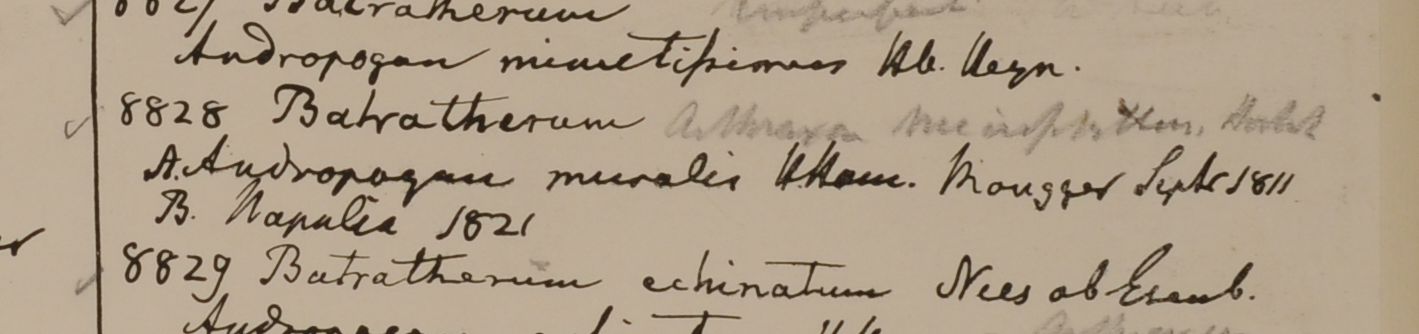 8827 Batratherum
Andropogon minutissimus Hb. Heyn.
8828 Batratherum Arthraxon
A. Andropogon muralis HHam. Mougger Septr 1811
B. Napalia 1821
8829 Batratherum echinatum Nees ab Esenb.